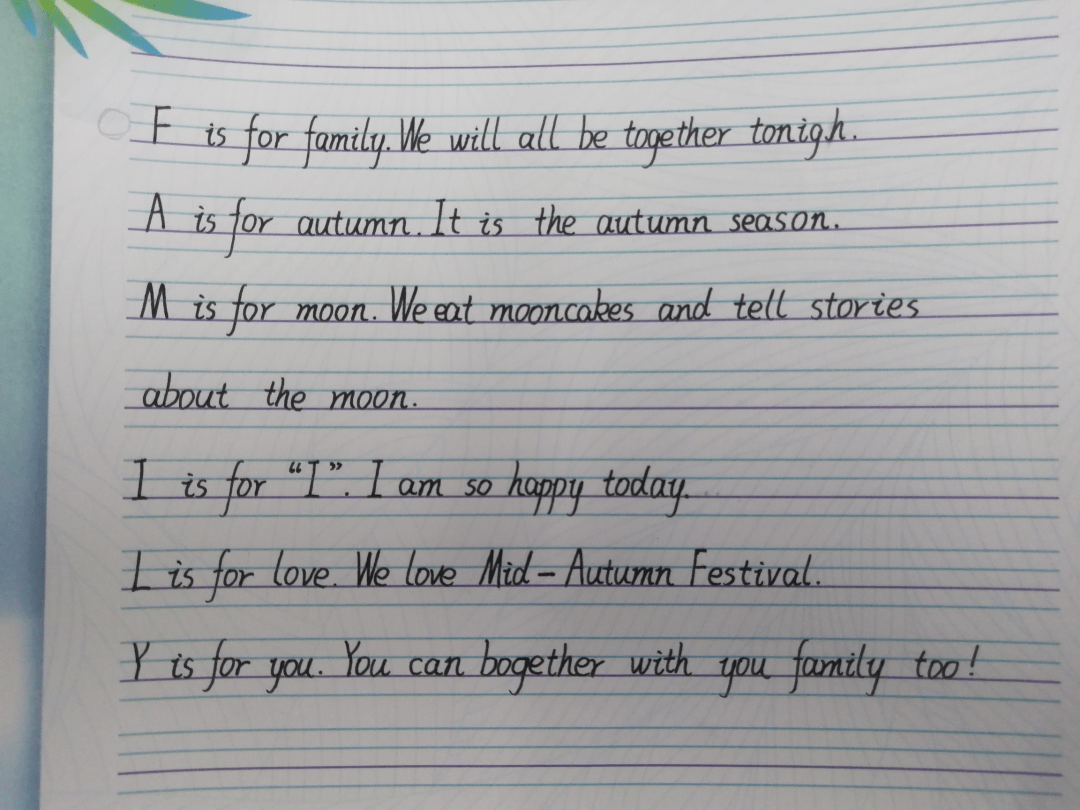 F is for family. We will all be together tonigh.
A is for autumn. It is the autumn season.
M is for moon. We eat mooncakes and tell stories
about the moon.
I is for “I”. I am so happy today.
L is for love. We love Mid-Autumn Festival.
Y is for you. You can bogether with you family too!